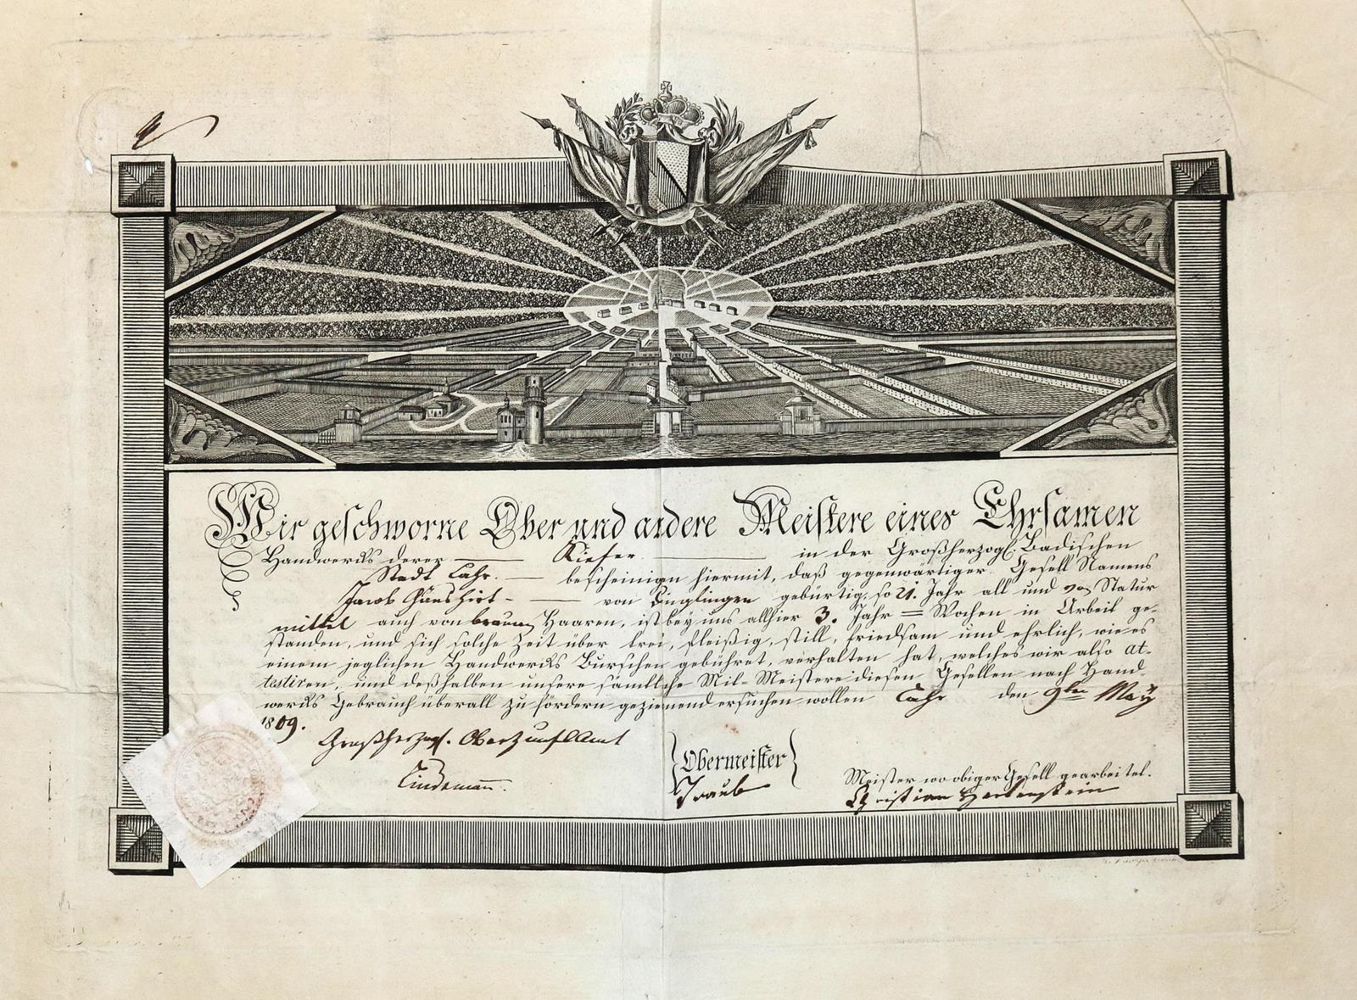 Wir geschworne Ober und andere Meistere eines Ehrsamen
Handwercks derer Kiefer in der Großherzogl. Badischen
Stadt Lahr. bescheinigen hiermit, daß gegenwärtiger Gesell Namens
Jacob von Dinglingen gebürtig, so 21. Jahr alt und von Statur
mittel auch von braunen Haaren, ist bey uns allhier 3. Jahr = Wochen in Arbeit ge-
standen, und sich solche Zeit über treu, fleißig, still, friedsam und ehrlich, wie es
einem jeglichen Handwercks Burschen gebühret, verhalten hat, welches wir also at-
testiren, und deßhalben unsere sämtliche Mit-Meistere diesen Gesellen nach Hand-
wercks Gebrauch überall zu fördern geziemend ersuchen wollen Lahr den 9ten May
1809.
Großherzogl. Oberzunftamt
Obermeister
Lindemann.
Meister wo obiger Gesell gearbeitet.
Traub
Christian